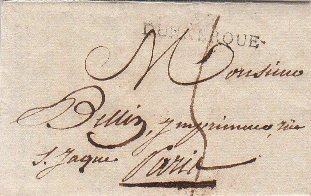 DUNKERQUE
Monsieur
Bellin, Imprimeur, rüe
S. Jaque
Paris